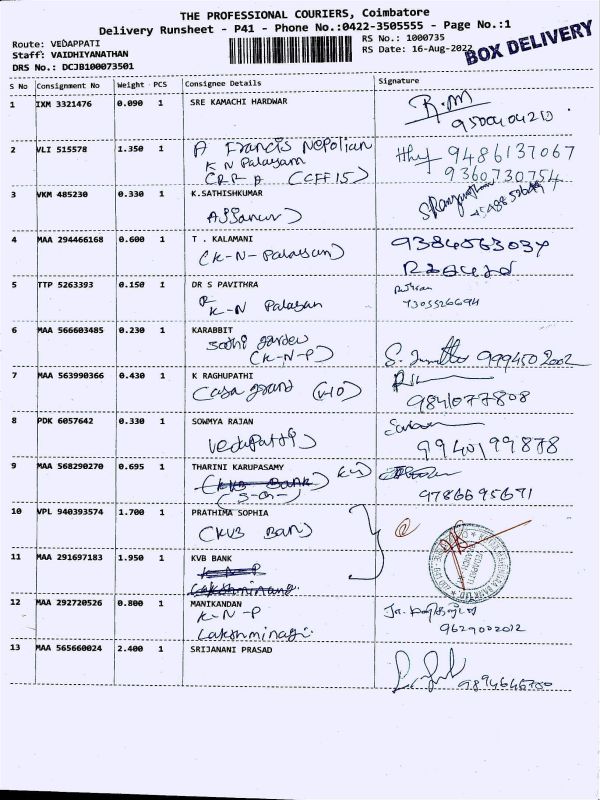 THE PROFESSIONAL COURIERS, Coimbatore
Delivery Runsheet - P41 - Phone No.:0422-3505555 - Page No.:1
Route: VEDAPPATI
Staff: VAIDHIYANATHAN
DRS No.: DCJB100073501
RS No.: 1000735
RS Date: 16-Aug-2022
BOX DELIVERY
S No Consignment No Weight PCS Consignee Details Signature
1 IXM 3321476 0.090 1 SRE KAMACHI HARDWAR
R.M
9500404210
2 VLI 515578 1.350 1 A Francis Nepolian
K N Palayam
9486137067
9360730754
3 VKM 485230 0.330 1 K.SATHISHKUMAR
4 MAA 294466168 0.600 1 T . KALAMANI
(K-N-Palayam)
5 TTP 5263393 0.150 1 DR S PAVITHRA
K-N Palayam
7305526694
6 MAA 566603485 0.230 1 KARABBIT
garden
(K-N-P)
9994502002
7 MAA 563990366 0.430 1 K RAGHUPATHI
Casa grand
9841077808
8 PDK 6057642 0.330 1 SOWMYA RAJAN
Vedapatti
9940199878
9 MAA 568290270 0.695 1 THARINI KARUPASAMY
9786695671
10 VPL 940393574 1.700 1 PRATHIMA SOPHIA
(KVB Bank)
11 MAA 291697183 1.950 1 KVB BANK
12 MAA 292720526 0.800 1 MANIKANDAN
K-N-P
9629002012
13 MAA 565660024 2.400 1 SRIJANANI PRASAD
9894646700